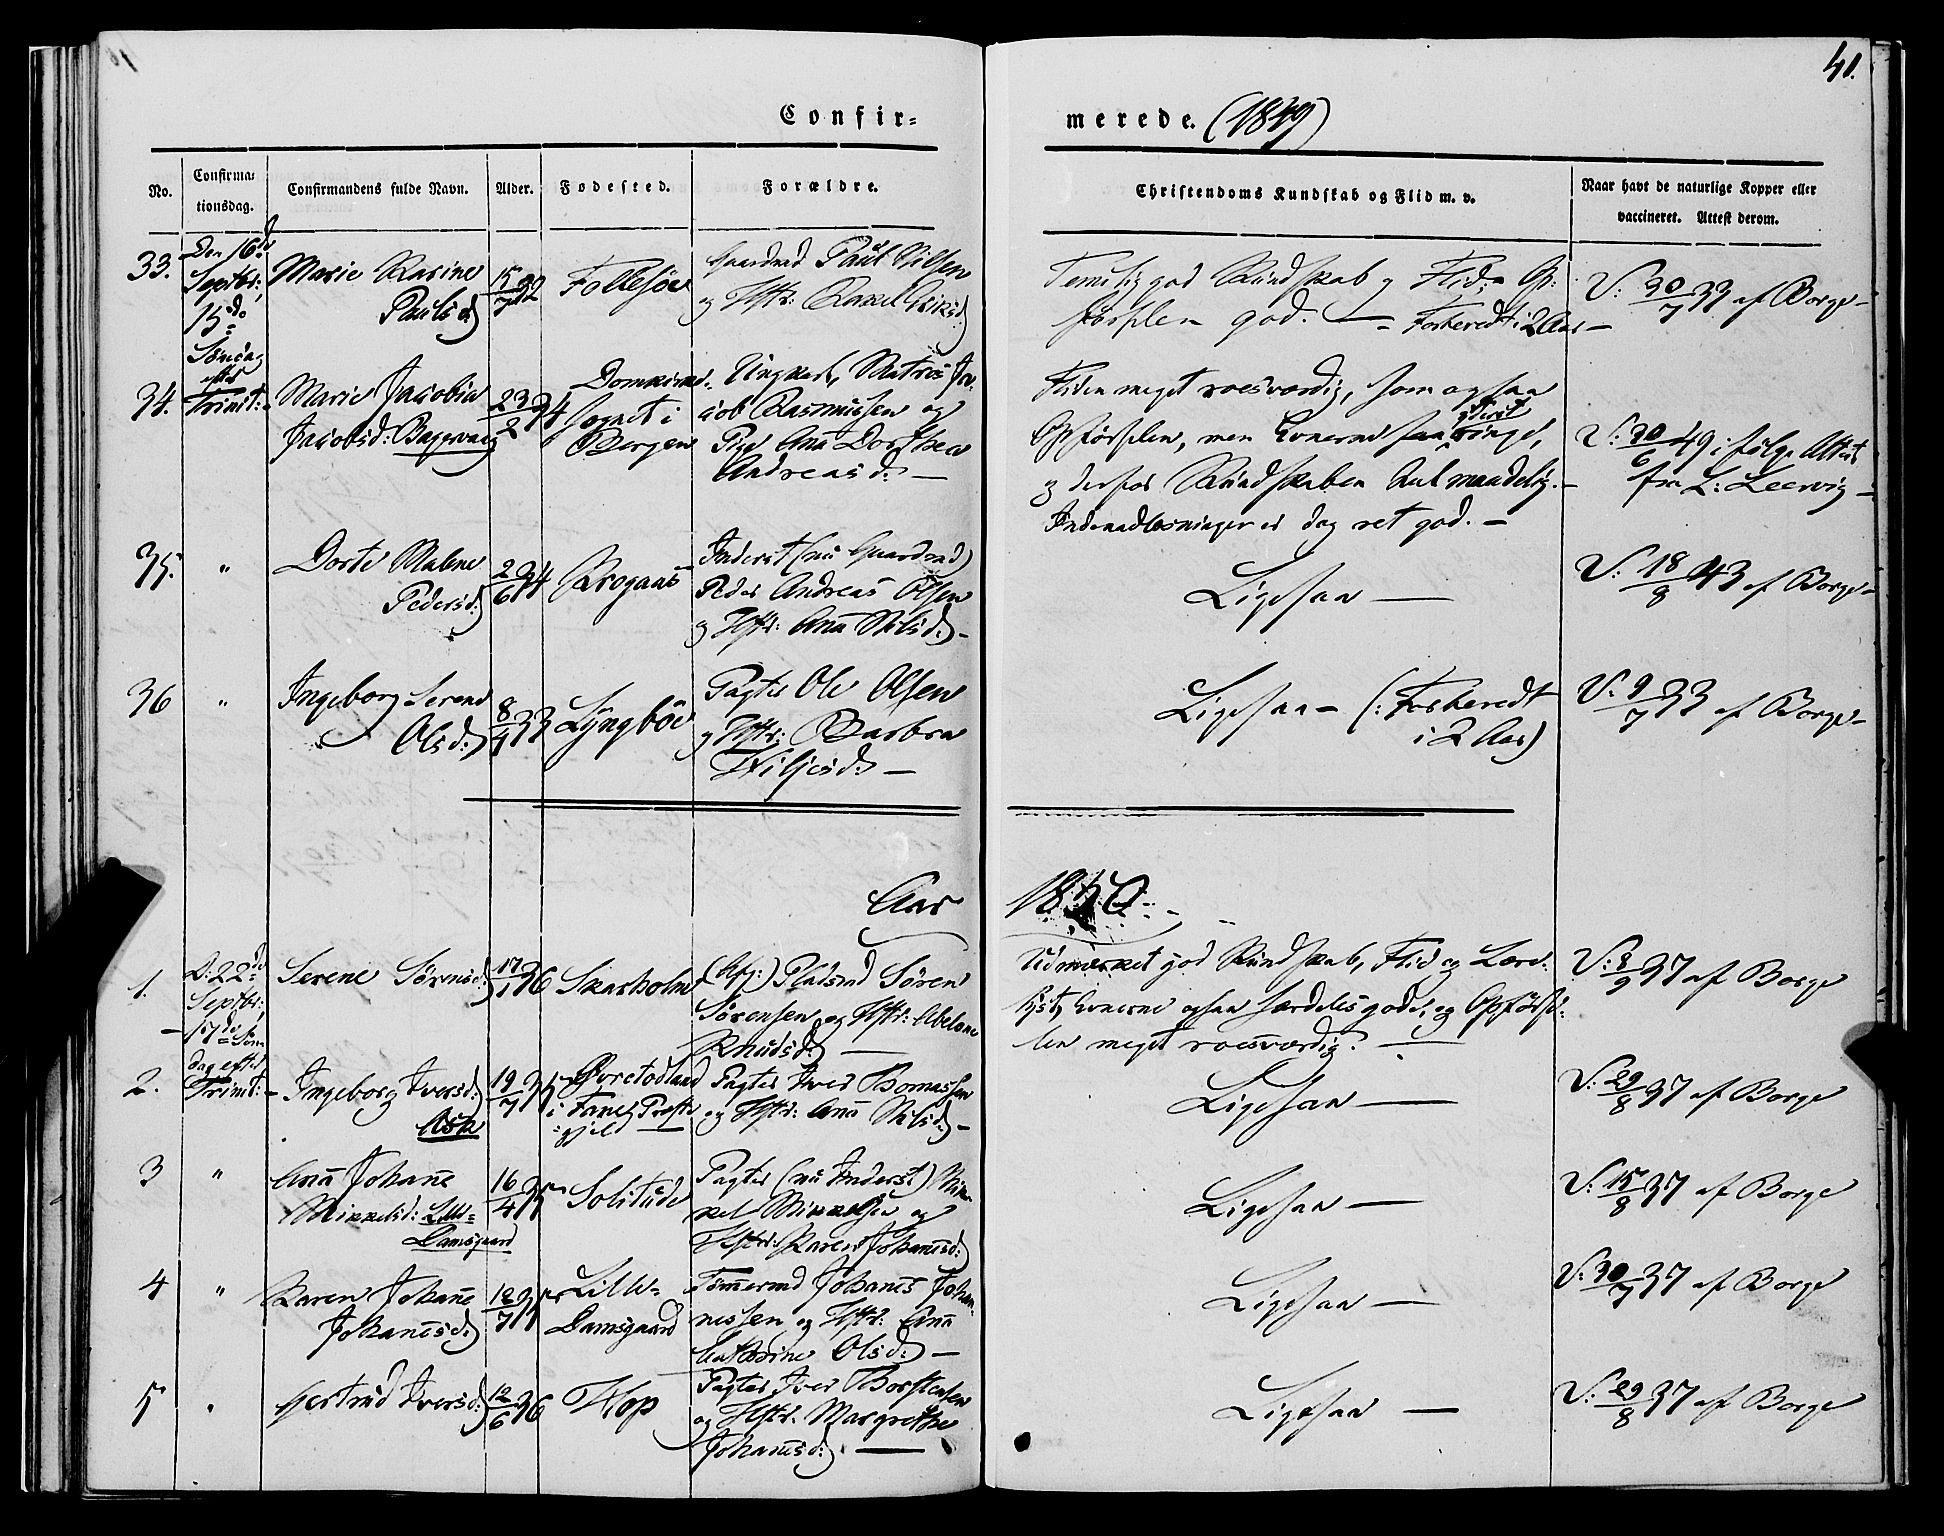 41.
Confir=
merede. (1849)
No.
Confirma=
tionsdag.
Confirmandens fulde Navn.
Alder.
Fødested.
Forældre.
Christendoms Kundskab og Flid m. v.
Naar havt de naturlige Kopper eller
vaccineret. Attest derom.
33.
Den 16d
Septbr:
15de
Søndag
efter
Trinit:
Marie Karine
Paulsd:
15/7 32
Follesøe
Gaardmd Paul Nilsen
og Hstr: Rakel Eriksd:
Temelig god Kundskab og Flid; Op-
førslen god. — Forberedt i 2 Aar —
V: 30/7 33 af Borge —
34.
Marie Jacobia
Jacobsd: Baggvaag
23/2 34
Domkirke-
Sognet i
Bergen
Ungkarl, Matros Ja-
cob Rasmussen og
Pige Anna Dorthea
Andreasd: —
Fliden meget roesværdig, som ogsaa
Opførslen, men Evnerne saa yderst ringe,
og derfor Kundskaben kul maadelig. —
Indenadlæsningen er dog ret god. —
V: 30/6 49 ifølge Attest
fra L: Leervig —
35.
"
Dorte Malene
Pedersd:
2/6 34
Krogaas
Inderst (nu Gaardmd)
Peder Andreas Olsen
og Hstr: Anna Nilsd: —
Ligesaa —
V: 18/8 43 af Borge —
36
"
Ingeborg Serene
Olsd:
8/4 33
Lyngbøe
Pagter Ole Olsen
og Hstr: Barbra
Hiljesd: —
Ligesaa — (: Forberedt
i 2 Aar)
V: 9/7 33 af Borge —
Aar
1850.
1.
D: 22de
Septbr:
— 17de Søn-
dag efter
Trinit: —
Serene Sørensd:
17/1 36
Skarholm
(Afg:) Pladsmd Søren
Sørensen og Hstr: Abelone
Knudsd: —
Udmærket god Kundskab, Flid og Lære-
lyst, Evnerne ogsaa særdeles gode, og Opførse-
len meget roesværdig. —
V: 8/9 37 af Borge
2.
Ingeborg Iversd:
Ask
19/7 35
Øvretodland
i Fane Præste-
gjeld
Pagter Iver Thomassen
og Hstr: Anna Nilsd: —
Ligesaa —
V: 29/8 37 af Borge
3
"
Anna Johanne
Mikkelsd: Lille=
Damsgaard
16/4 35
Solitude
Pagter (nu Inderst) Mik-
kel Mikkelsen og
Hstr: Karen Johannesd:
Ligesaa —
V: 15/8 37 af Borge
4
"
Karen Johanne
Johannesd:
12/7 35
Lille=
Damsgaard
Tømmermd Johannes Johan-
nessen og Hstr: Anna
Cathrine Olsd: —
Ligesaa —
V: 30/7 37 af Borge
5
"
Gertrud Iversd:
12/6 36
Hop
Pagter Iver Thorstensen
og Hstr. Margrethe
Johannesd: —
Ligesaa —
V: 29/8 37 af Borge